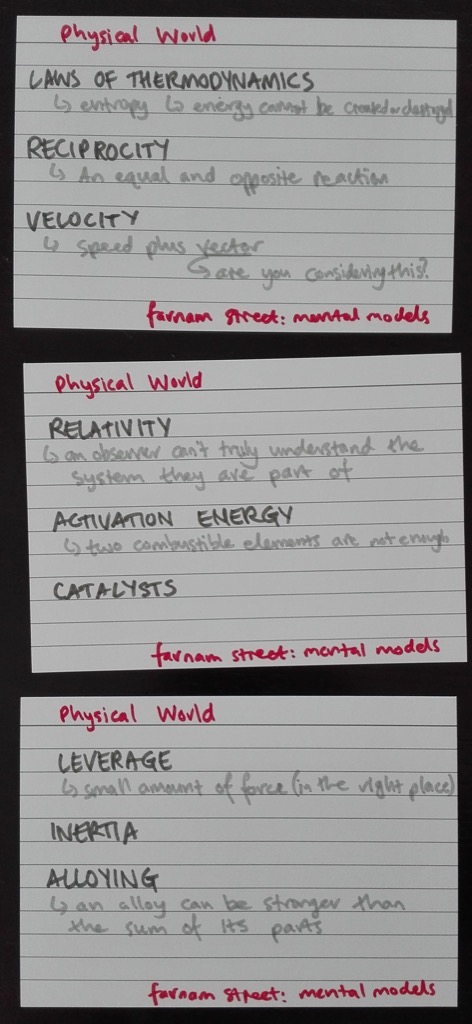 Physical World
LAWS OF THERMODYNAMICS
↳ entropy ↳ energy cannot be created or destroyed
RECIPROCITY
↳ An equal and opposite reaction
VELOCITY
↳ speed plus vector
↳ are you considering this?
farnam street: mental models
Physical World
RELATIVITY
↳ an observer can't truly understand the
system they are part of
ACTIVATION ENERGY
↳ two combustible elements are not enough
CATALYSTS
farnam street: mental models
Physical World
LEVERAGE
↳ small amount of force (in the right place)
INERTIA
ALLOYING
↳ an alloy can be stronger than
the sum of its parts
farnam street: mental models